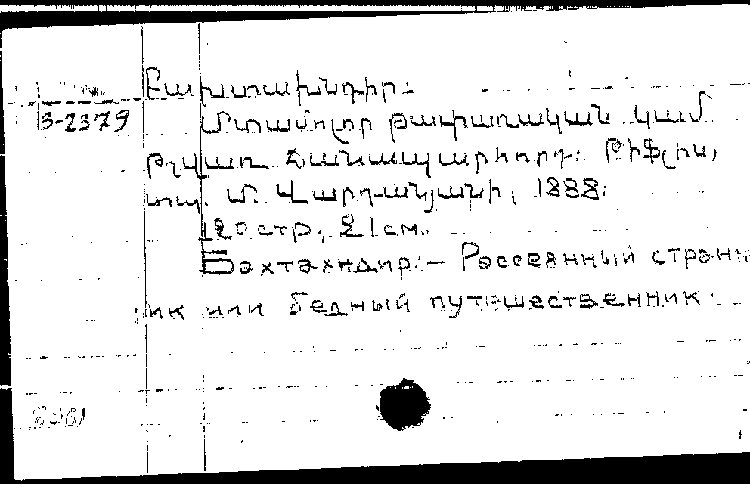 Բախտախնդիր:
3-2379 Մտամոլոր թափառական կամ
թշվառ ճանապարհորդ: Թիֆլիս,
տպ. Մ. Վարդանյանի, 1888:
120 стр., 21см.
Бахтахндир:— Рассеянный странн
ик или бедный путешественник.